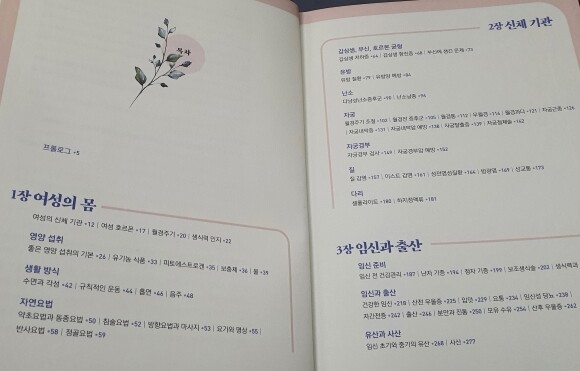 목차
프롤로그 •5
1장 여성의 몸
여성의 신체 기관 •12 | 여성 호르몬 •17 | 월경주기 •20 | 생식력 인지 •22
영양 섭취
좋은 영양 섭취의 기본 •26 | 유기농 식품 •33 | 피토에스트로겐 •35 | 보충제 •36 | 물 •39
생활 방식
수면과 각성 •42 | 규칙적인 운동 •44 | 흡연 •46 | 음주 •48
자연요법
약초요법과 동종요법 •50 | 침술요법 •52 | 방향요법과 마사지 •53 | 요가와 명상 •55 |
반사요법 •58 | 정골요법 •59
2장 신체 기관
갑상샘, 부신, 호르몬 균형
갑상샘 저하증 •64 | 갑상샘 항진증 •68 | 부신과 생긴 문제 •73
유방
유방 질환 •79 | 유방암 예방 •84
난소
다낭성난소증후군 •90 | 난소낭종 •96
자궁
월경주기 조절 •102 | 월경전 증후군 •105 | 월경통 •113 | 무월경 •114 | 월경과다 •121 | 자궁근종 •126
| 자궁내막증 •131 | 자궁내막암 예방 •138 | 자궁탈출증 •139 | 자궁절제술 •142
자궁경부
자궁경부 검사 •149 | 자궁경부암 예방 •152
질
질 감염 •157 | 이스트 감염 •161 | 성전염성질환 •166 | 방광염 •169 | 성교통 •173
다리
셀룰라이트 •180 | 하지정맥류 •181
3장 임신과 출산
임신 준비
임신 전 건강관리 •187 | 난자 기증 •194 | 정자 기증 •199 | 보조생식술 •202 | 생식력과
임신과 출산
건강한 임신 •218 | 산전 우울증 •225 | 입덧 •229 | 요통 •234 | 임신성 당뇨 •238 |
자간전증 •242 | 출산 •246 | 분만과 진통 •250 | 모유 수유 •254 | 산후 우울증 •262
유산과 사산
임신 초기와 중기의 유산 •268 | 사산 •277